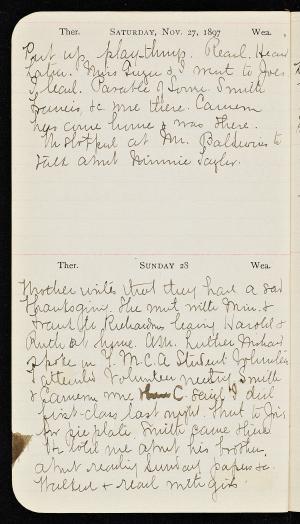 Ther. SATURDAY, NOV. 27, 1897 Wea.
Put up playthings. Read. Heard
Latin. Miss & I went to Joe's
& read. Parable of Smith
Francis, &c were there. Cameron
has come home & was there.
at Mr. Baldwin's to
talk about Minnie Taylor.
Ther. SUNDAY 28 Wea.
Mother writes that they had a sad
Thanksgiving. She went with Min. &
to Richardsons leaving Harold &
Ruth at home. A Mr. Luther
spoke in Y.M.C.A. Student Volunteer
I attended Volunteer meeting. Smith
& Cameron were C. said I did
first-class last night. Went to Joe's
for pie plate. Smith came there
& told me about his brother,
about reading Sunday papers &c.
Walked & read with girls.